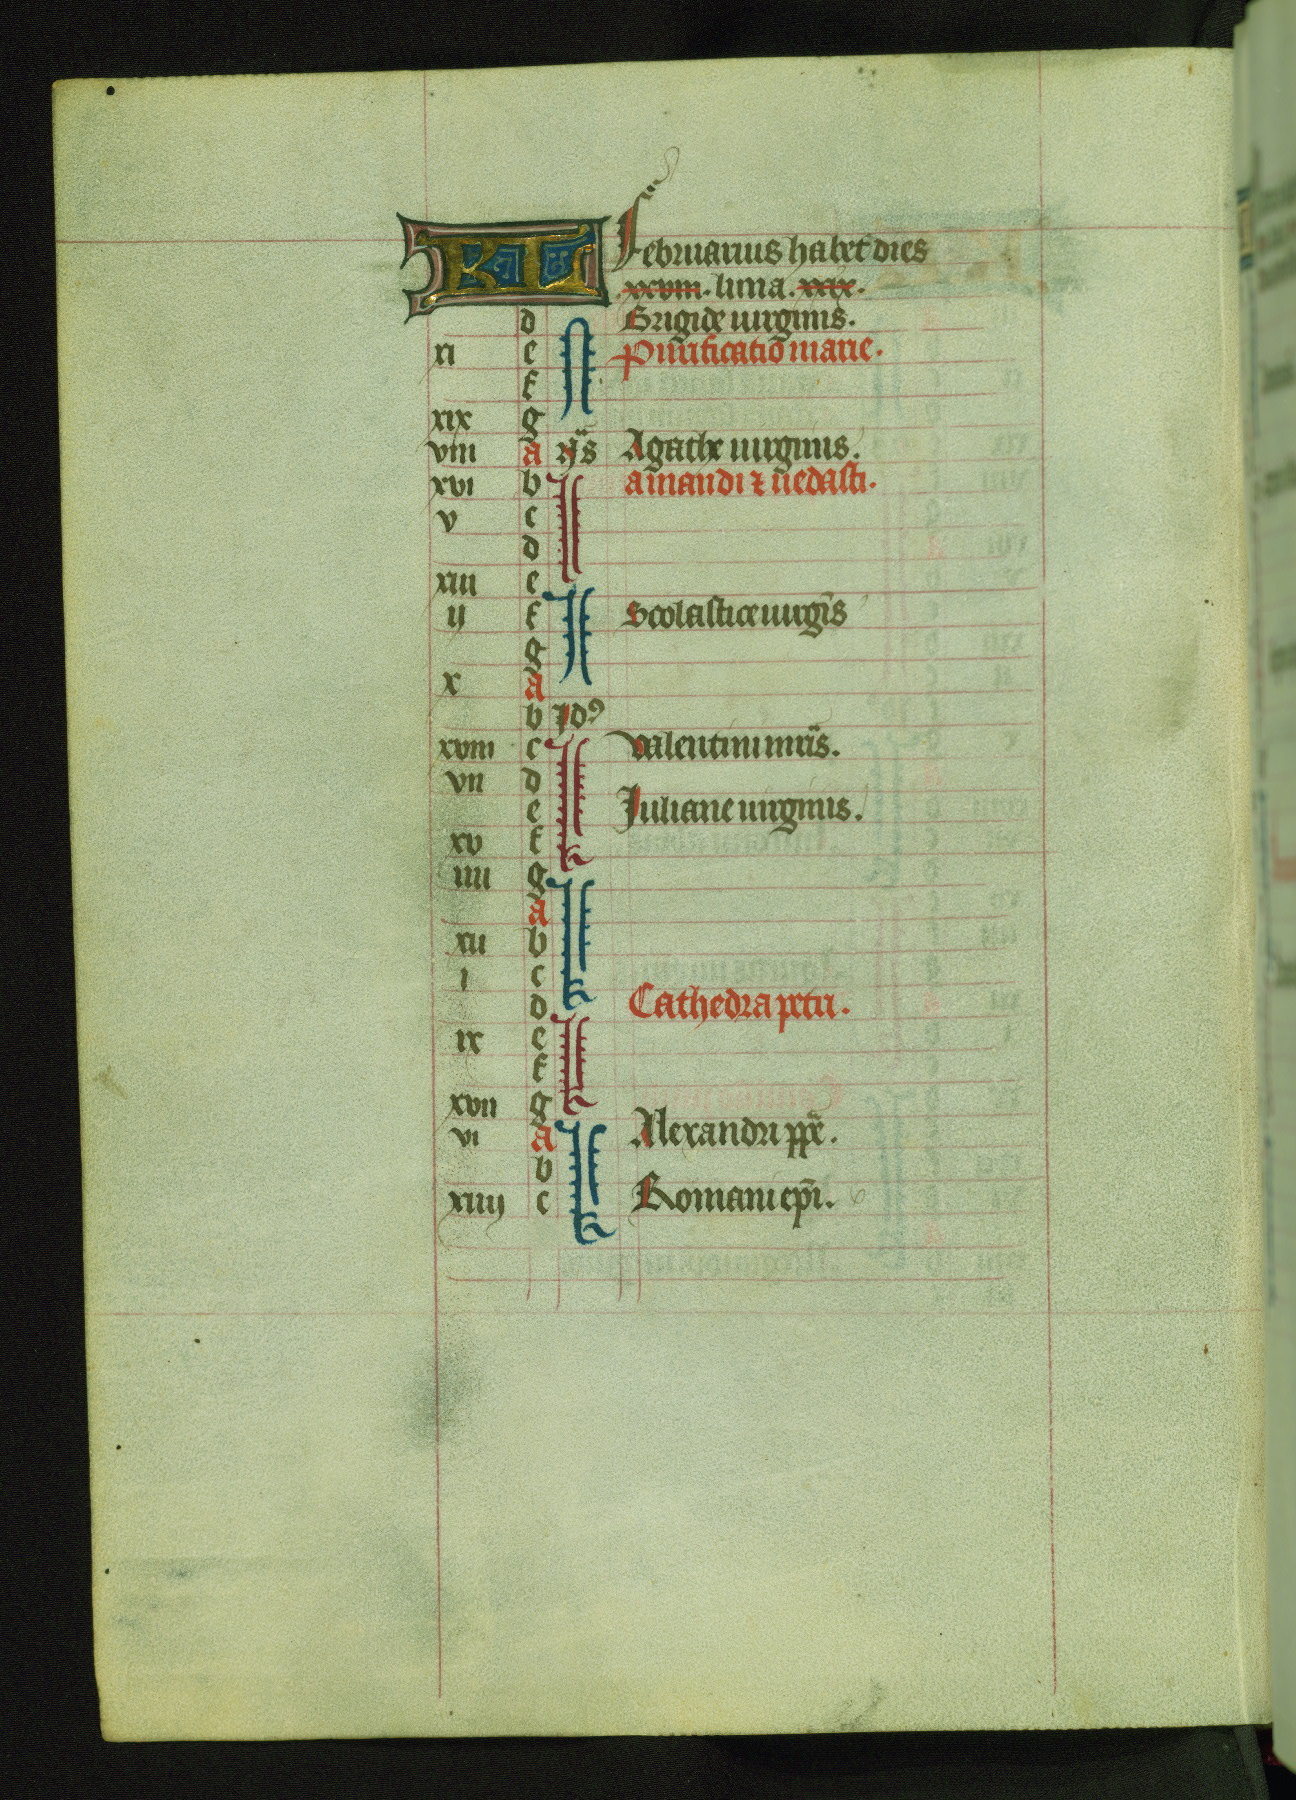 KL Februarius habet dies
.xxviii. luna .xxix.
d Brigide uirginis.
xi e Purificatio marie.
f
xix g
viii a Nȯs Agathe uirginis.
xvi b amandi ⁊ uedasti.
v c
d
xiii e
ij f Scolastice uirgīs
g
x a
b Idꝰ
xviii c Valentini mr̄is.
vii d
e Iuliane uirginis.
xv f
iiii g
a
xii b
i c
d Cathedra petri.
ix e
f
xvii g
vi a Alexandri pp̄e.
b
xiiij c Romani ep̄i.